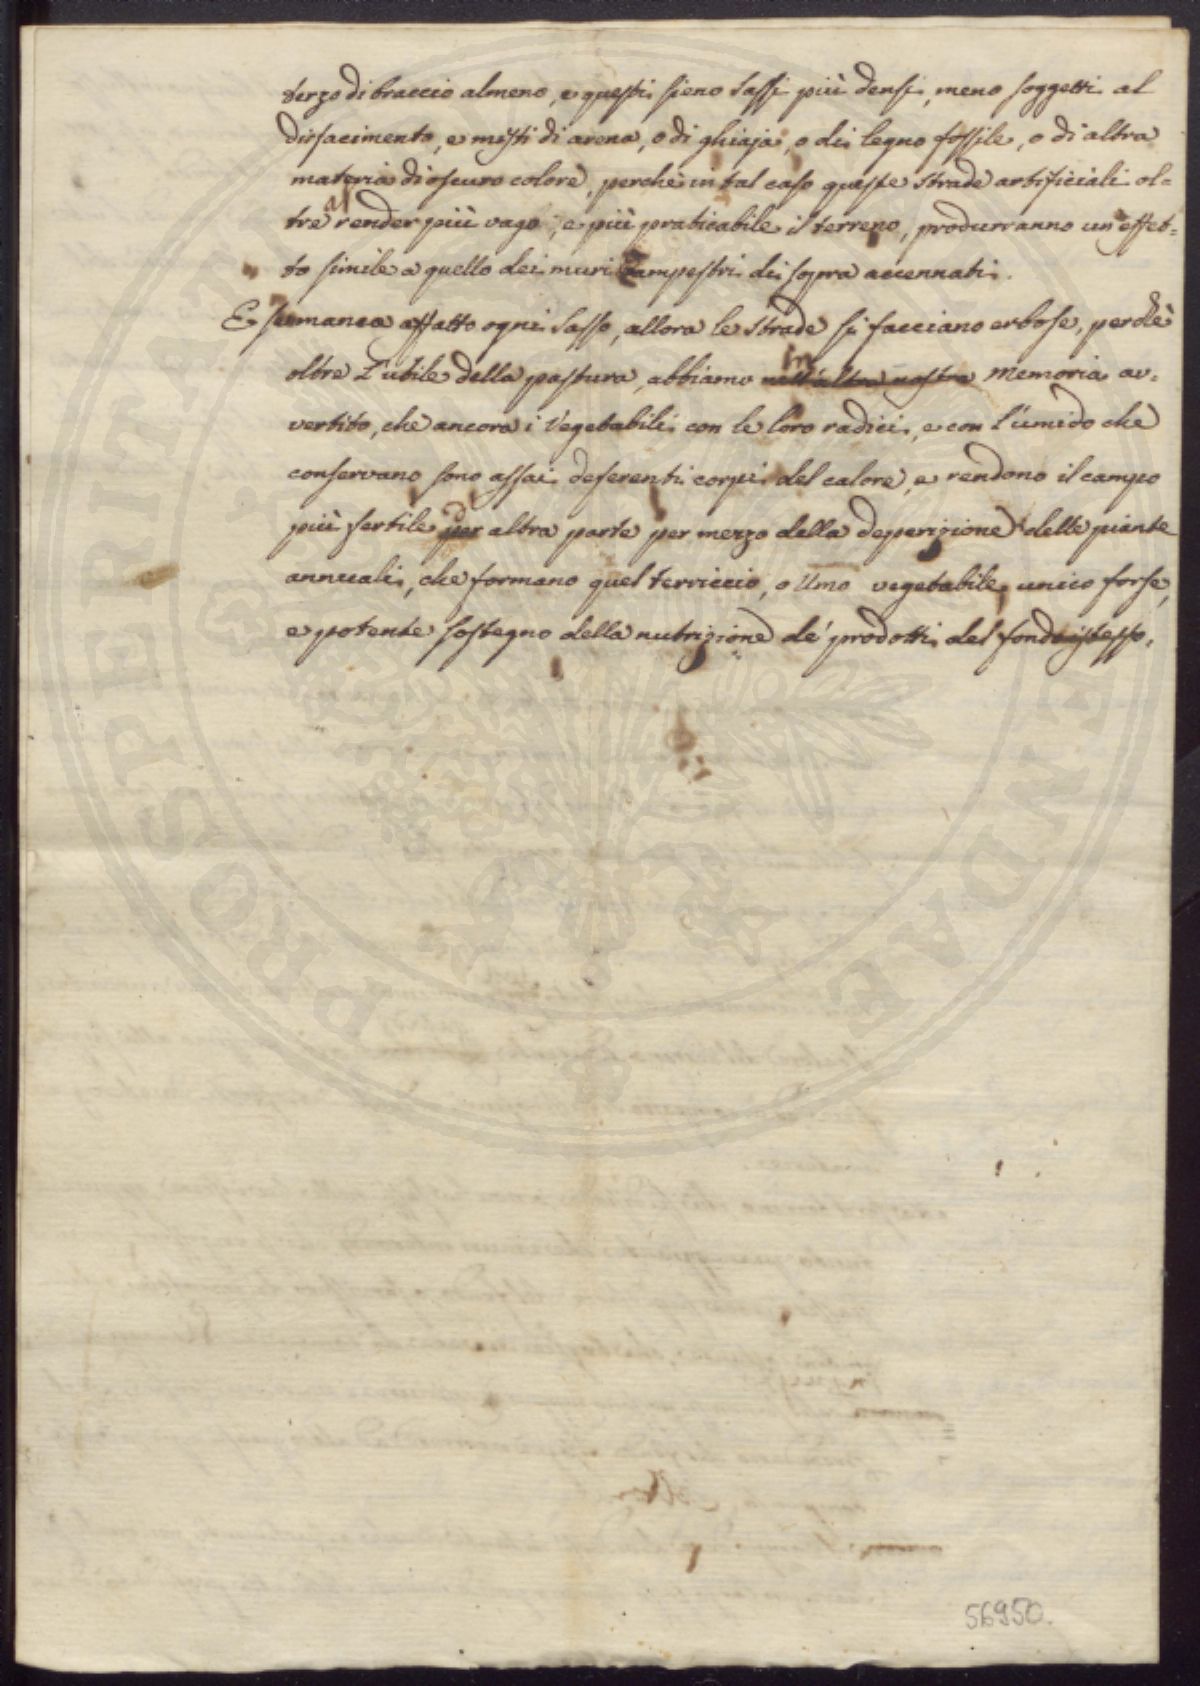 terzo di braccio almeno, e questi sieno sassi più densi, meno soggetti al
disfacimento, e misti di arena, o di ghiaja, o di legno fossile, o di altra
materia di oscuro colore, perchè in tal caso queste strade artificiali ol=
tre a render più vago, e più praticabile il terreno, produrranno un'effet=
to simile a quello dei muri campestri di sopra accennati.
E se manca affatto ogni sasso, allora le strade si facciano erbose, perchè
oltre l'utile della pastura, abbiamo nell'altra nostra in memoria av=
vertito, che ancora i vegetabili con le loro radici, e con l'umido che
conservano sono assai deferenti corpi del calore, e rendono il campo
più fertile per altra parte per mezzo della deperizione delle piante
annuali, che formano quel terriccio, o Umo vegetabile, unico forse,
e potente sostegno della nutrizione de' prodotti del fondo istesso.
PROSPERITATI AUGENDAE
56950.